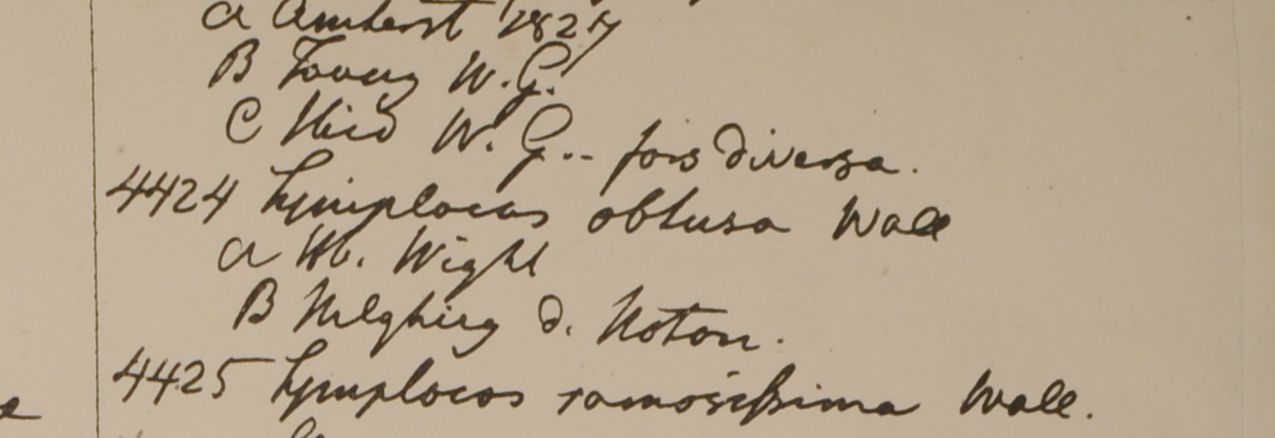 a Amherst 1827
B Tavoy W. G.
C Ibid W. G. .. fors diversa.
4424 Symplocos obtusa Wall
a Hb. Wight
B Nilghiry d. Noton.
4425 Symplocos ramosissima Wall.